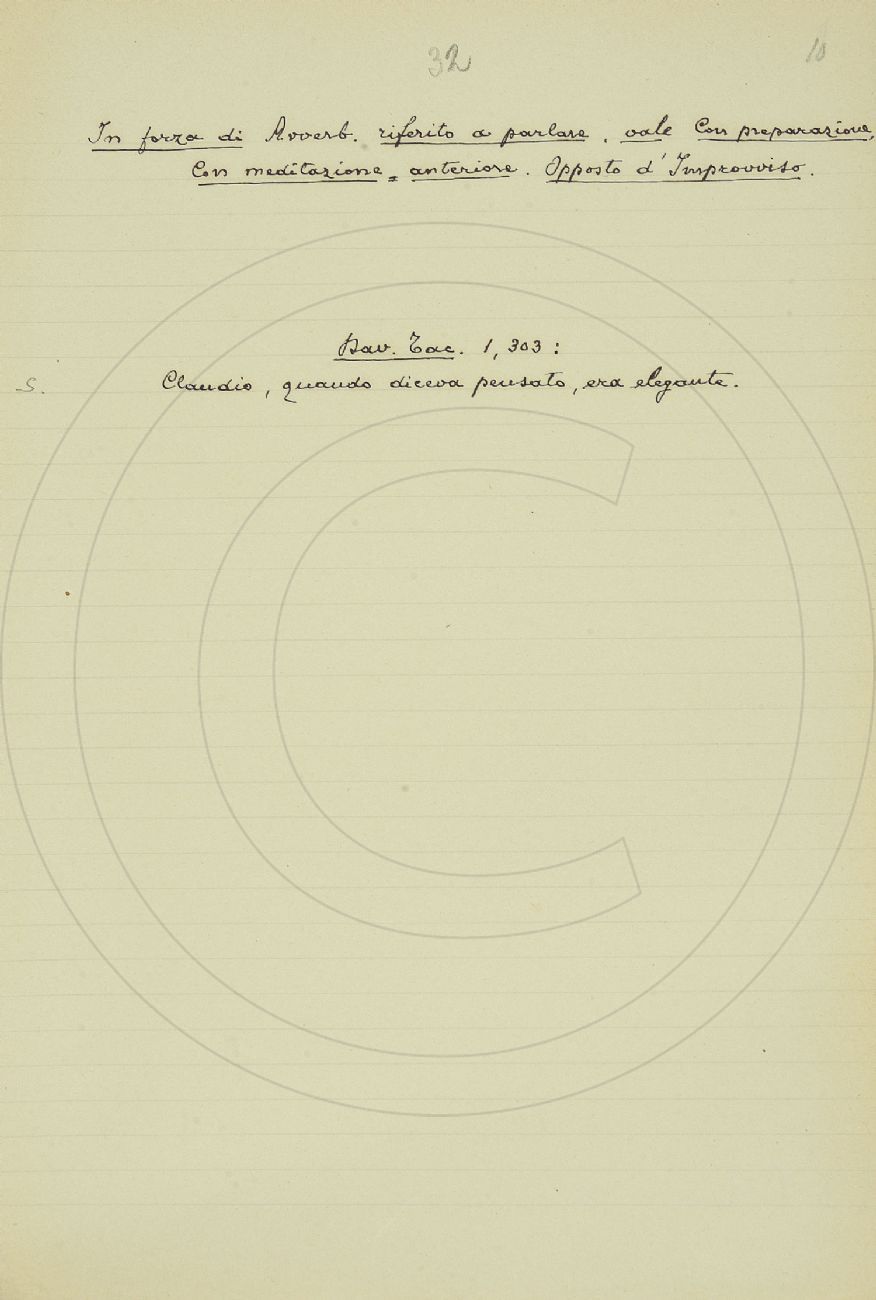 32
10
In forza di Avverb. riferito a parlare, vale Con preparazione,
Con meditazione anteriore. Opposto d'Improvviso.
Dav. Tac. 1, 303:
S. Claudio, quando diceva pensato, era elegante.